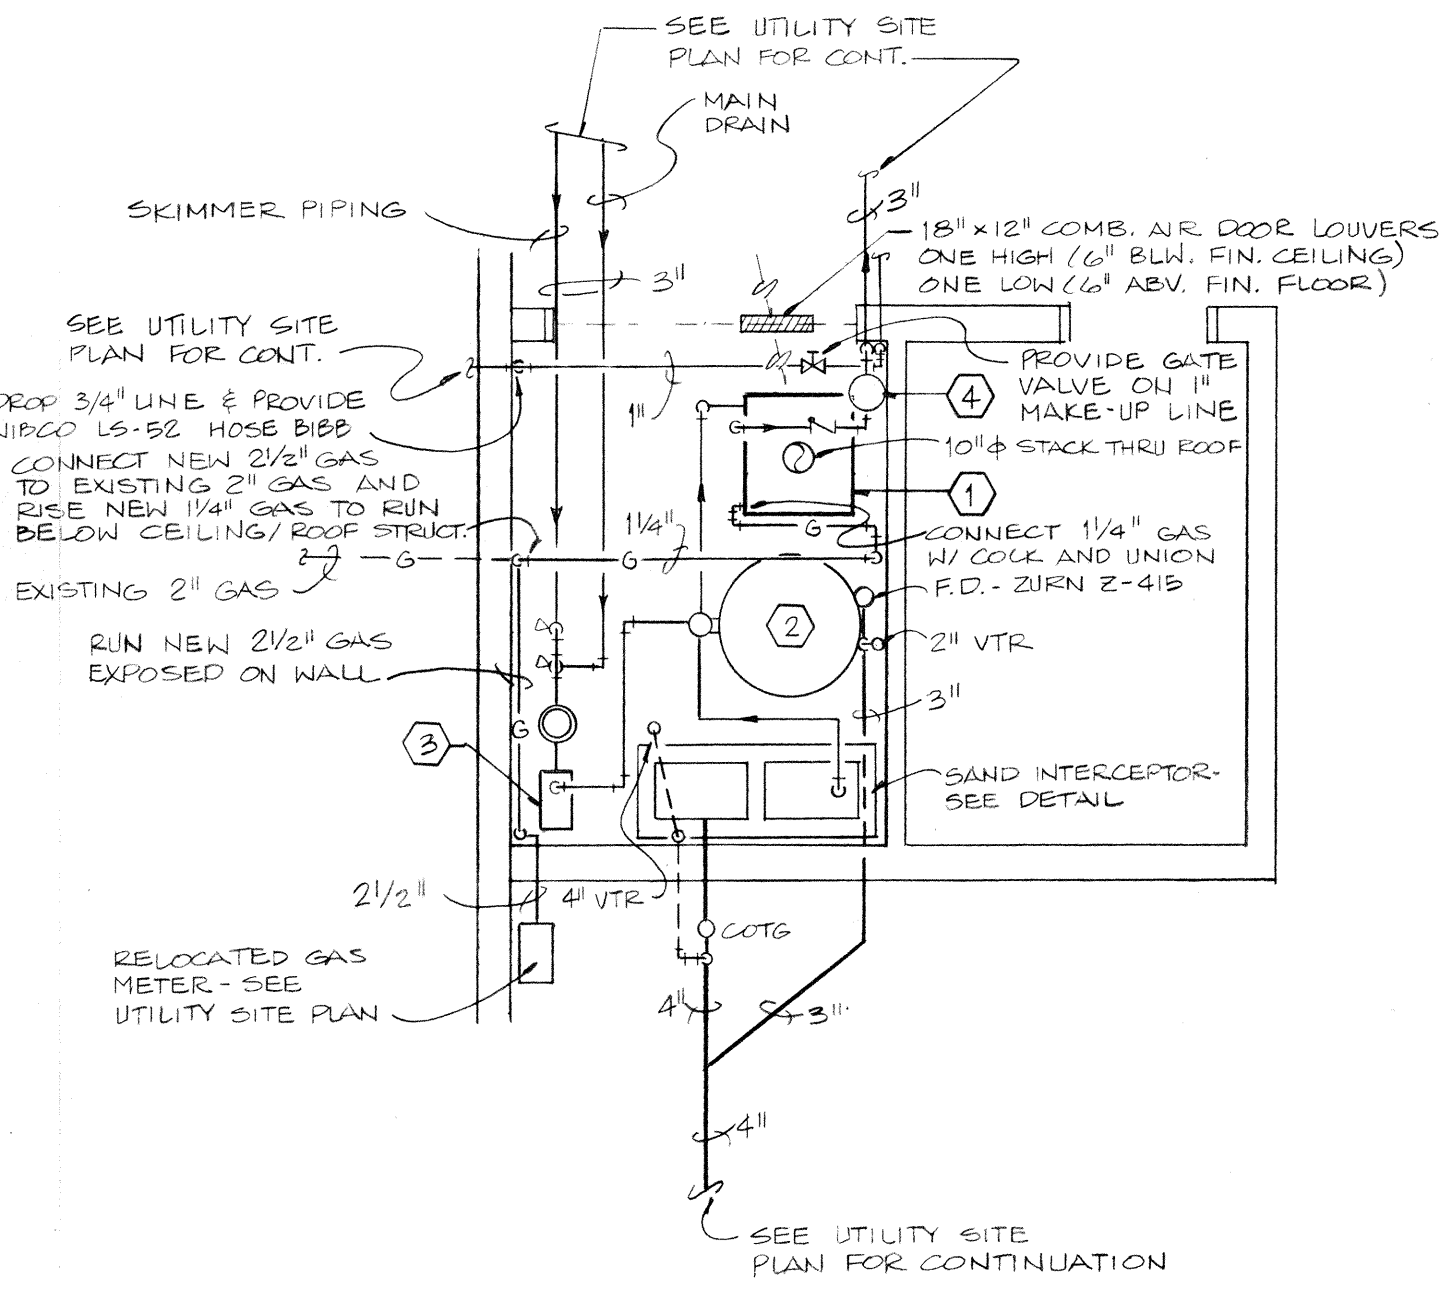 SEE UTILITY SITE
PLAN FOR CONT.
MAIN
DRAIN
SKIMMER PIPING
3"
3"
18" x 12" COMB. AIR DOOR LOUVERS
ONE HIGH (6" BLW. FIN. CEILING)
ONE LOW (6" ABV. FIN. FLOOR)
SEE UTILITY SITE
PLAN FOR CONT.
DROP 3/4" LINE & PROVIDE
NIBCO LS-52 HOSE BIBB
1"
PROVIDE GATE
VALVE ON 1"
MAKE-UP LINE
4
10"ϕ STACK THRU ROOF
1
CONNECT NEW 2 1/2" GAS
TO EXISTING 2" GAS AND
RISE NEW 1 1/4" GAS TO RUN
BELOW CEILING/ROOF STRUCT.
1 1/4"
G
G
G
CONNECT 1 1/4" GAS
W/ COCK AND UNION
EXISTING 2" GAS
F.D. - ZURN Z-415
2
2" VTR
RUN NEW 2 1/2" GAS
EXPOSED ON WALL
3"
G
3
SAND INTERCEPTOR-
SEE DETAIL
2 1/2"
4" VTR
COTG
RELOCATED GAS
METER - SEE
UTILITY SITE PLAN
4"
3"
4"
SEE UTILITY SITE
PLAN FOR CONTINUATION